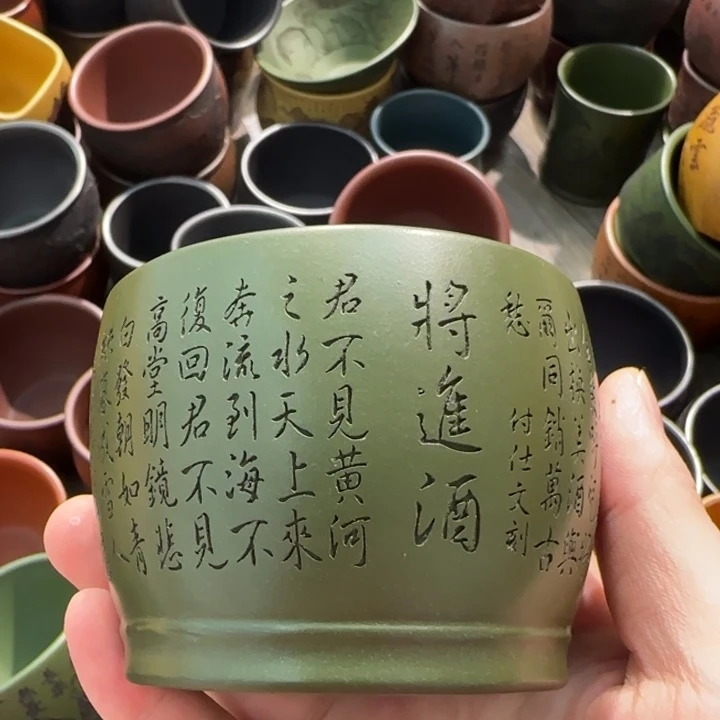 將進酒
君不見黃河
之水天上來
奔流到海不
復回君不見
高堂明鏡悲
白發朝如青
絲暮成雪人
出換美酒與
爾同銷萬古
愁
付仕文刻